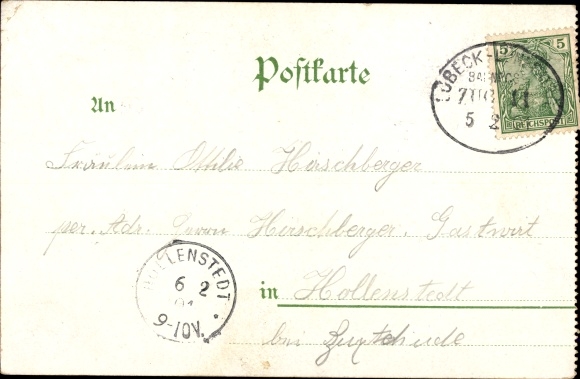 Postkarte
An
5
REICHSPOST
LÜBECK-
BAHNPOST
ZUG 11
5 2
Fräulein Ottilie Hirschberger
per. Adr. Herrn Hirschberger, Gastwirt
in Hollenstedt
bei Buxtehude
HOLLENSTEDT
6 2
01
9-10V.